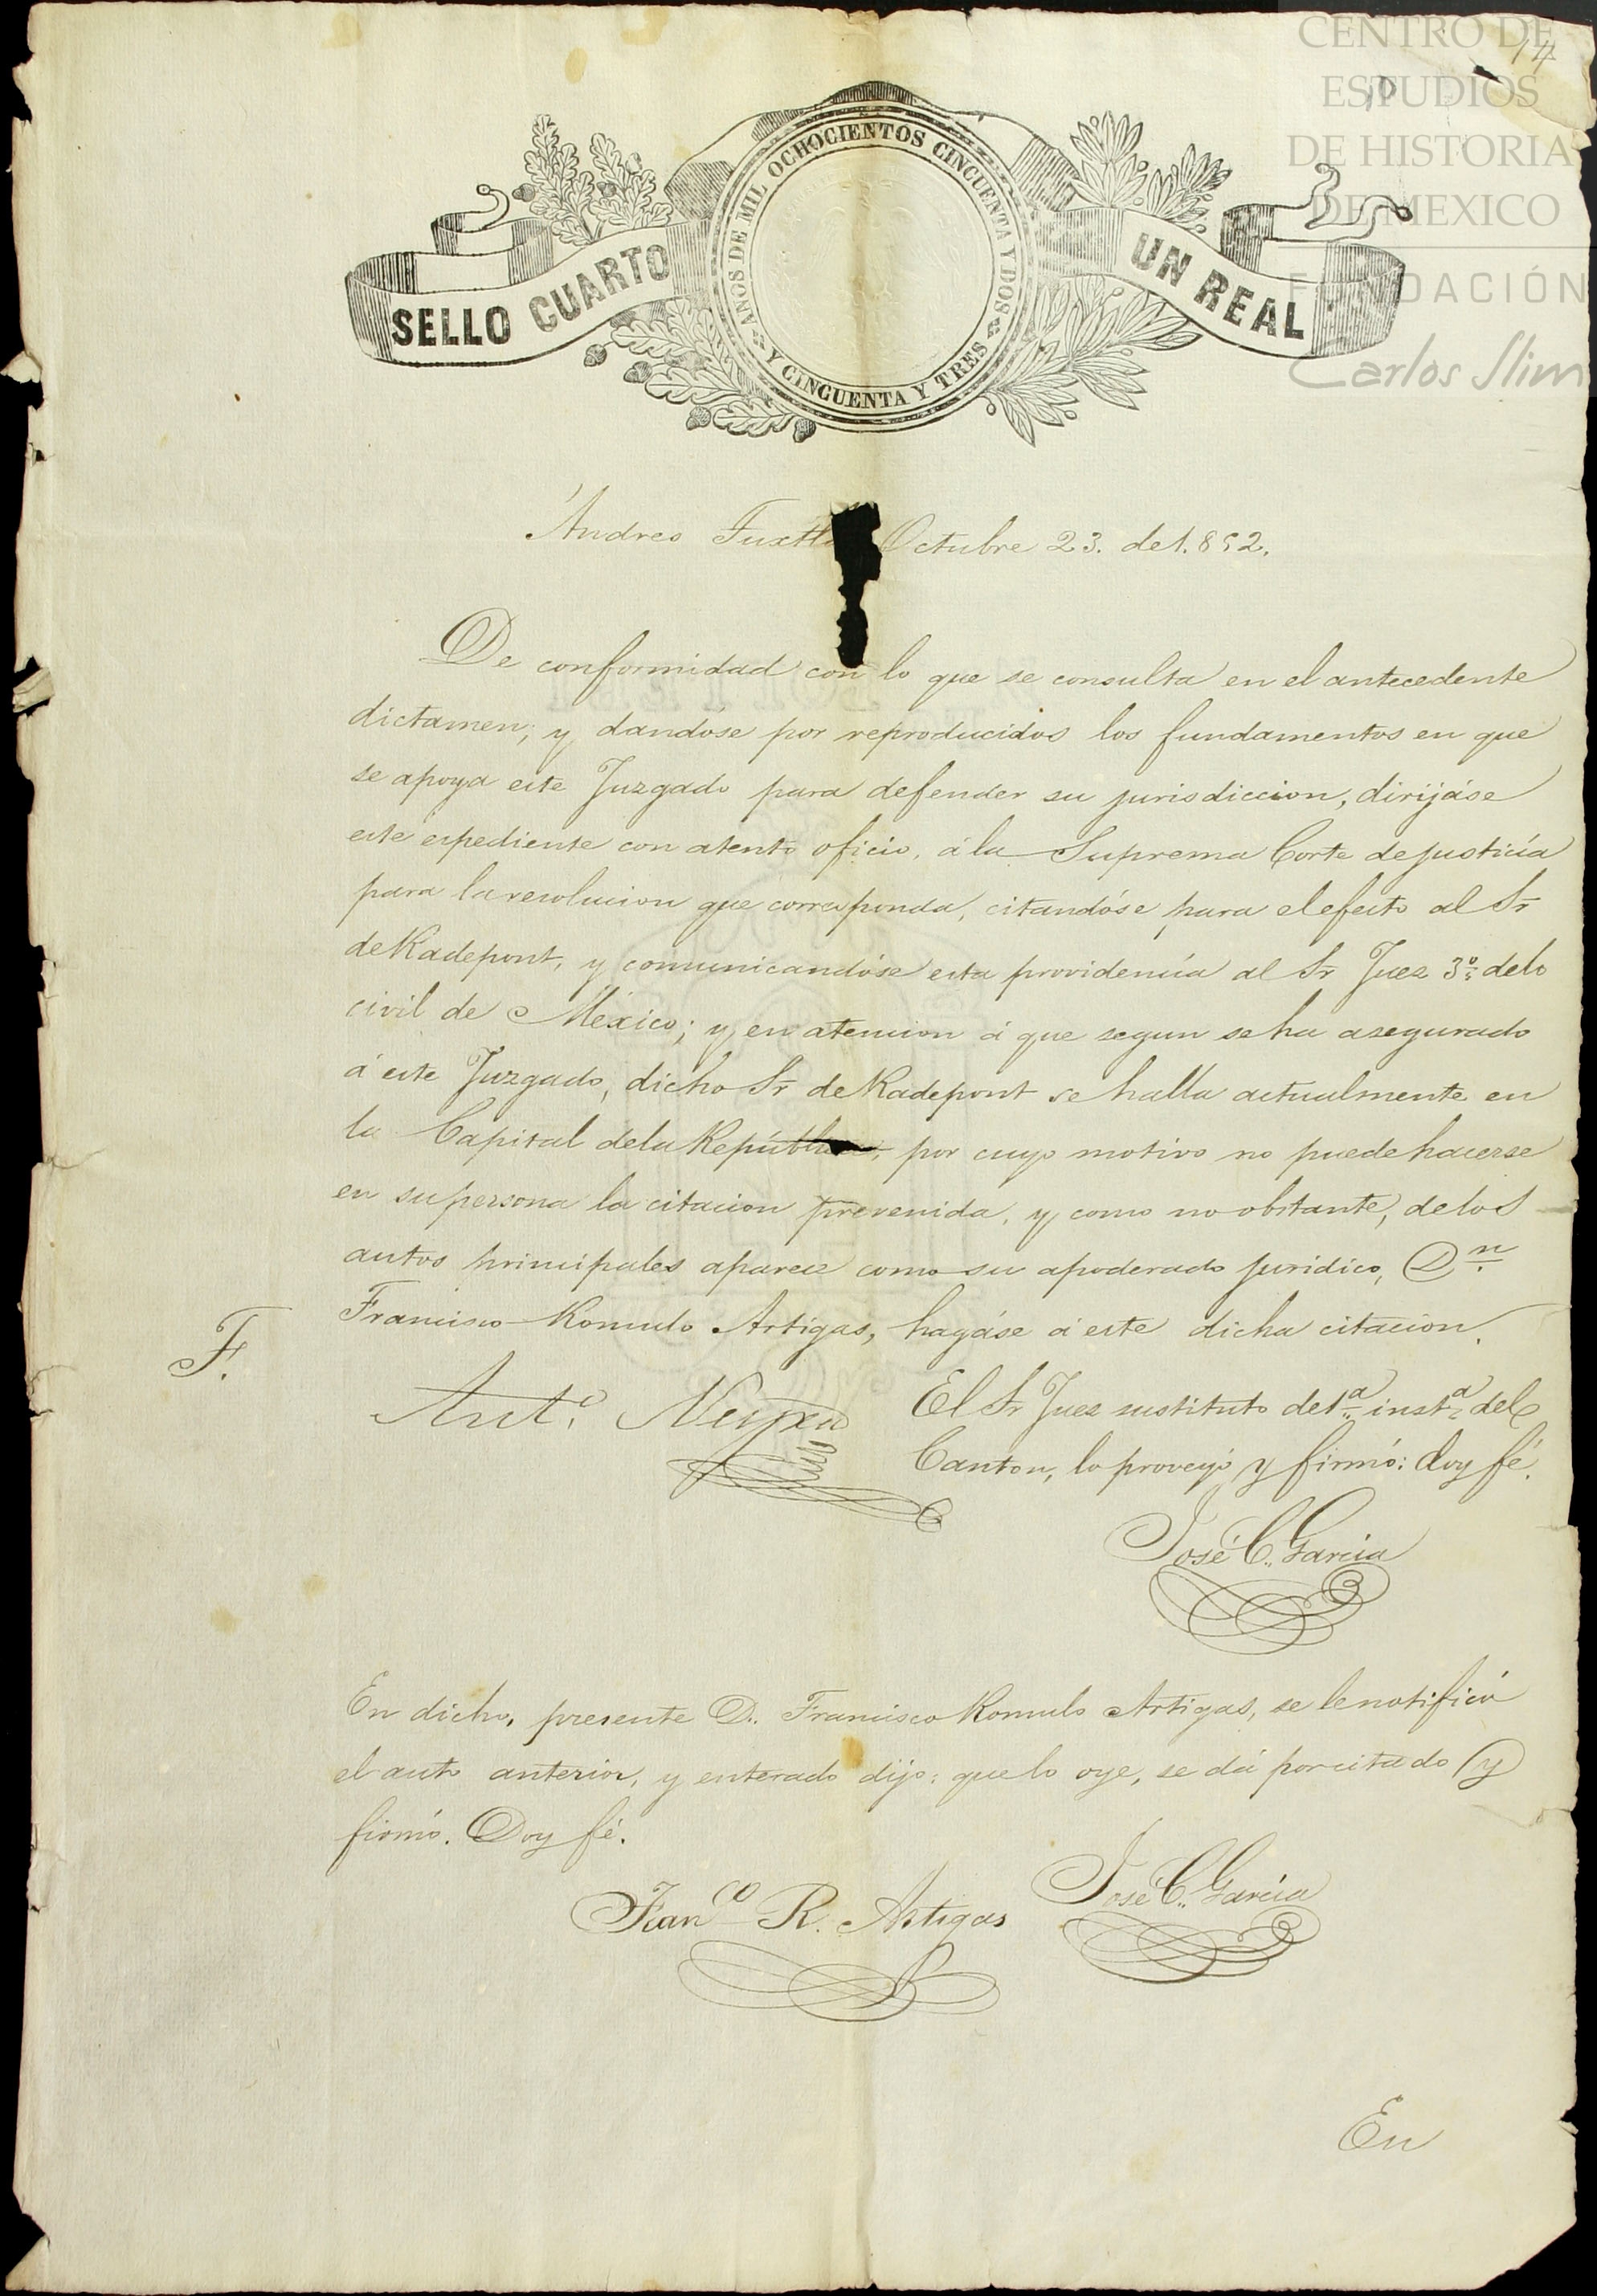 CENTRO DE
ESTUDIOS
DE HISTORIA
DE MEXICO
FUNDACIÓN
Carlos Slim
14
10
SELLO CUARTO
AÑOS DE MIL OCHOCIENTOS CINCUENTA Y DOS
Y CINCUENTA Y TRES
UN REAL
Andres Tuxtla Octubre 23. de 1.852.
De conformidad con lo que se consulta en el antecedente
dictamen; y dandóse por reproducidos los fundamentos en que
se apoya este Juzgado para defender su jurisdiccion, dirijáse
este espediente con atento oficio, á la Suprema Corte de justicia
para la resolucion que corresponda, citandóse para el efecto al Sr
de Radepont, y comunicandóse esta providencia al Sr Juez 3º de lo
civil de México; y en atencion á que segun se ha asegurado
á este Juzgado, dicho Sr de Radepont se halla actualmente en
la Capital de la República, por cuyo motivo no puede hacerse
en su persona la citacion prevenida, y como no obstante, de los
autos principales aparece como su apoderado juridico, Dn.
Francisco Romulo Artigas, hagáse á este dicha citacion.
F.
Anto.
El Sr Juez sustituto de 1ª instª del
Canton, lo proveyó y firmó: doy fé.
José C. García
En dicho, presente D. Francisco Romulo Artigas, se le notificó
el auto anterior, y enterado dijo: que lo oye, se dá por citado y
firmó. Doy fé.
Franco R. Artigas
José C. García
En